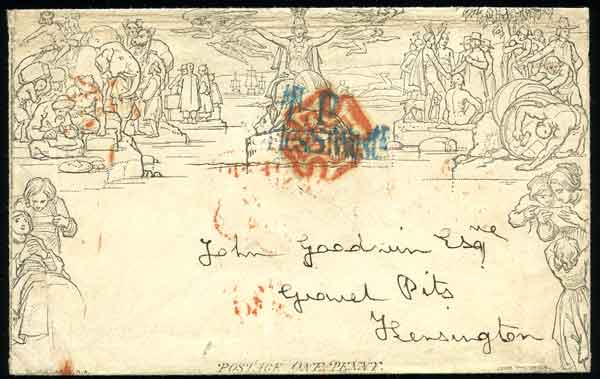 T.P
John Goodwin Esqre
Gravel Pits
Kensington
POSTAGE ONE PENNY.